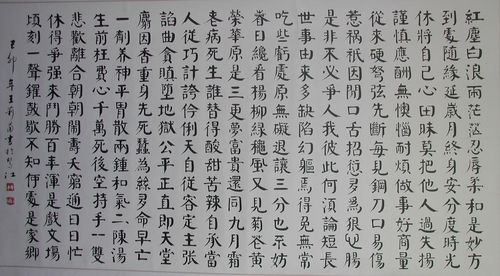 紅塵白浪兩茫茫忍辱柔和是妙方
到處隨緣延歲月終身安分度時光
休將自己心田昧莫把他人過失揚
謹慎應酬無懊惱耐煩做事好商量
從來硬弩弦先斷每見鋼刀口易傷
惹禍祇因閒口舌招愆為狠心腸
是非不必爭人我彼此何須論短長
世事由來多缺陷幻軀焉得免無常
吃些虧處原無礙退讓三分也不妨
春日纔看楊柳綠穐風又見菊芲黃
榮華原是三更夢富貴還同九月霜
老病死生誰替得酸甜苦辣自承當
人從巧計誇伶俐天自從容定主張
諂曲貪瞋墮地獄公平正直即天堂
麝因香重身先死蠶為絲多命早亡
一劑養神平胃散兩鍾和氣二陳湯
生前枉費心千萬死後空持手一雙
悲歡離合朝朝鬧壽夭窮通日日忙
休得爭强來鬥勝百年渾是戲文場
頃刻一聲鑼鼓歇不知何處是家鄉
己卯 書於 江